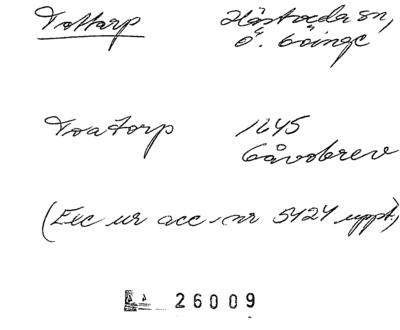 Tottarp Hästveda sn,
Ö. Göinge
Toatorp 1645
Gåvobrev
(Exc ur acc. nr 5424 uppt.)
26009